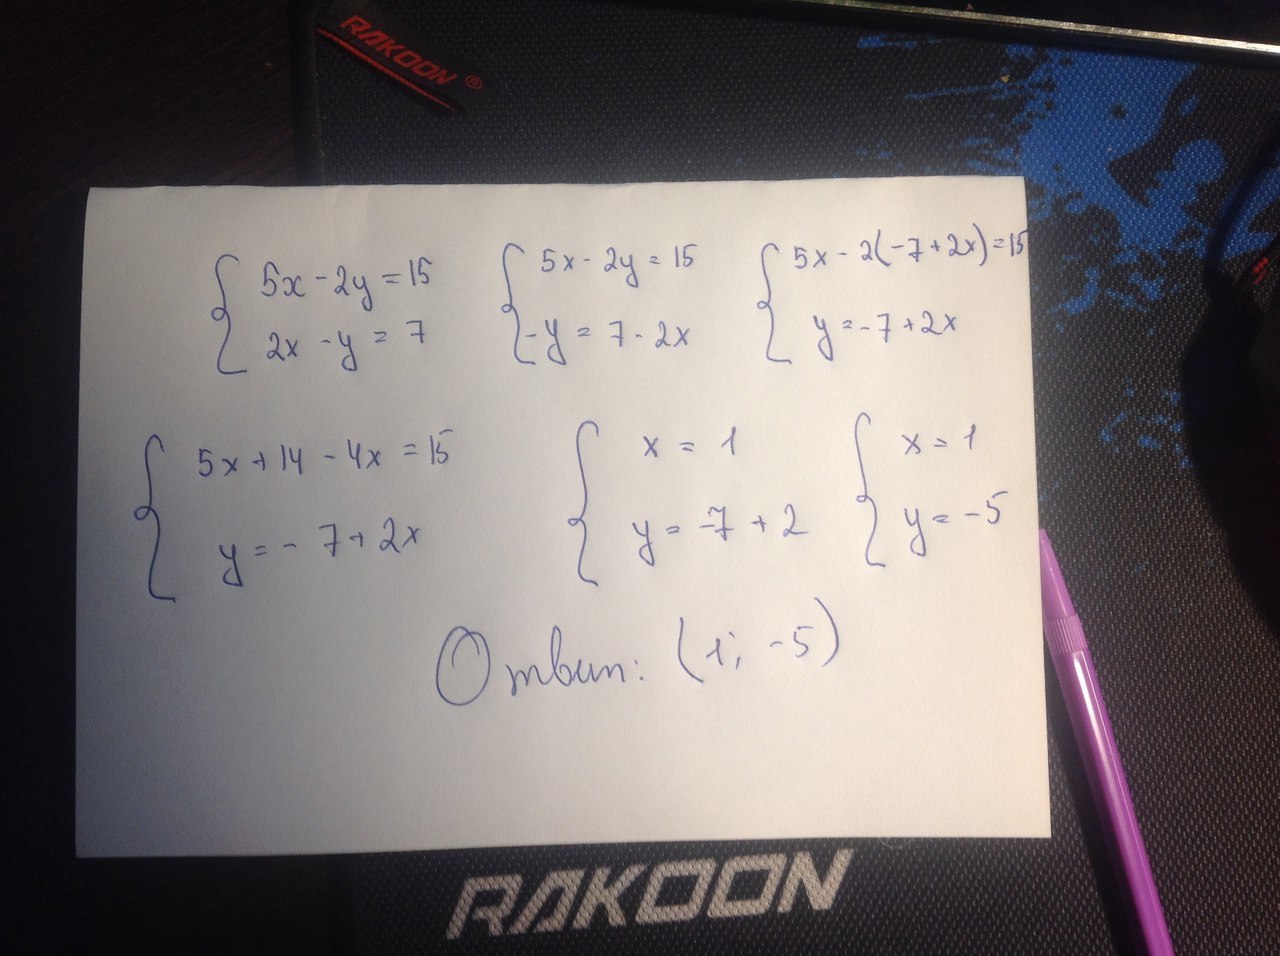 RAKOON ®
5x - 2y = 15
2x - y = 7
5x - 2y = 15
-y = 7 - 2x
5x - 2(-7 + 2x) = 15
y = -7 + 2x
5x + 14 - 4x = 15
y = - 7 + 2x
x = 1
y = -7 + 2
x = 1
y = -5
Ответ: (1; -5)
RAKOON